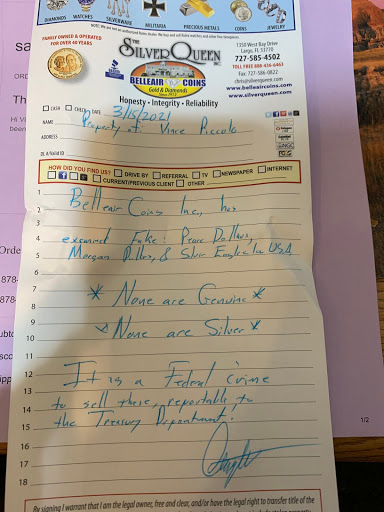 DIAMONDS WATCHES SILVERWARE MILITARIA PRECIOUS METALS COINS JEWELRY
FAMILY OWNED & OPERATED
FOR OVER 40 YEARS
THE
SILVERQUEEN
INC
BELLEAIR COINS
Gold & Diamonds
Since 1973
Honesty • Integrity • Reliability
1350 West Bay Drive
Largo, FL 33770
727-585-4502
TOLL FREE 888-436-6463
Fax 727-586-0822
chris@silverqueen.com
www.belleaircoins.com
www.silverqueen.com
CASH CHECK DATE 3/15/2021
NAME Property of: Vince Piccolo
ADDRESS
HOW DID YOU FIND US? DRIVE BY REFERRAL TV NEWSPAPER INTERNET
CURRENT/PREVIOUS CLIENT OTHER
1
2 Belleair Coins Inc, has
3
4 examined Fake! Peace Dollars,
5 Morgan Dollars, & Silver Eagles
6
7 * None are Genuine *
8
9 * None are Silver *
10
11
12 It is a Federal crime
13 to sell these, reportable to
14 the Treasury Department!
15
16
17
18
By signing I warrant that I am the legal owner, free and clear, and/or have the legal right to transfer title of the
1/2